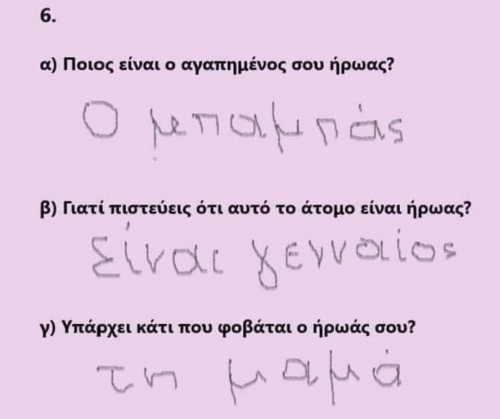 6.
α) Ποιος είναι ο αγαπημένος σου ήρωας?
Ο μπαμπάς
β) Γιατί πιστεύεις ότι αυτό το άτομο είναι ήρωας?
Είναι γενναίος
γ) Υπάρχει κάτι που φοβάται ο ήρωάς σου?
τη μαμά